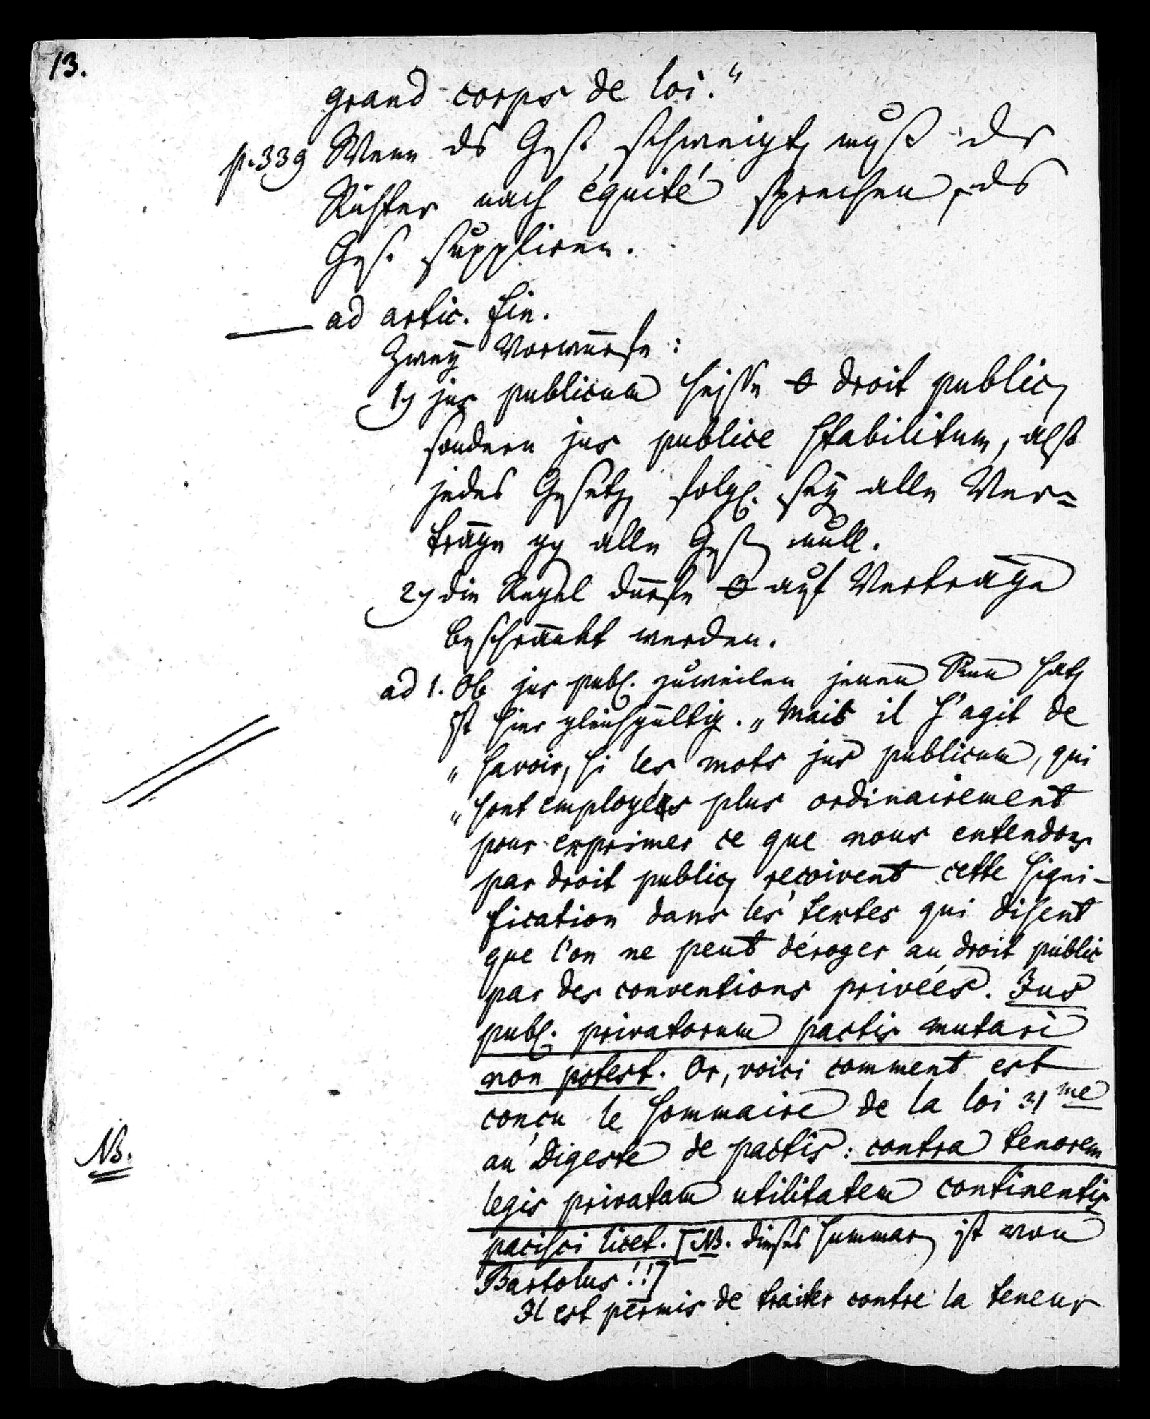 13.
grand corps de loi."
p. 339 Wenn ds Ges. schweigt, muß dr
Richter nach équité sprechen, ds
Ges. suppliren.
ad artic. fin.
Zweÿ Vorwürfe:
1, jus publicum heisse droit public,
sondern jus publice stabilitum, also
jedes Gesetz, folgl. seÿ alle Ver=
träge gg alle Ges. null.
2, die Regel dürfe auf Verträge
beschränkt werden.
ad 1. Ob jus publ. zuweilen jenen Sinn hat,
ist hier gleichgültig. „Mais il s'agit de
„savoir, si les mots jus publicum, qui
„sont employés plus ordinairement
pour exprimer ce que nous entendons
par droit public, recoivent cette signi-
fication dans les textes qui disent
que l'on ne peut déroger au droit public
par des conventions privées. Jus
publ. privatorum pactis mutari
non potest. Or, voici comment est
conçu le sommaire de la loi 31me
NB.
au Digeste de pactis: contra tenorem
legis privatam utilitatem continentis
pacisci licet. [NB. dieses Summar, ist von
Bartolus!!]
Il est permis de traiter contre la teneur